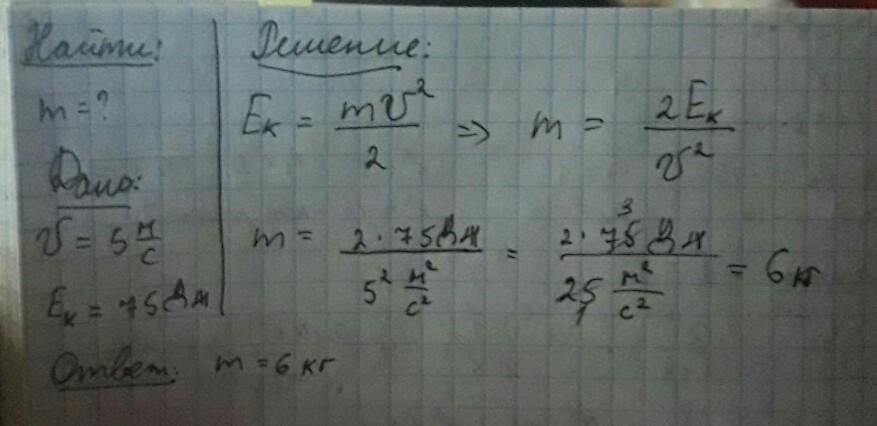 Найти:
m = ?
Дано:
v = 5 м/с
Eк = 75 Дж
Решение:
Eк = mv²/2 => m = 2Eк/v²
m = 2·75 Дж / 5² м²/с² = 2·75 3 Дж / 25 1 м²/с² = 6 кг
Ответ: m = 6 кг